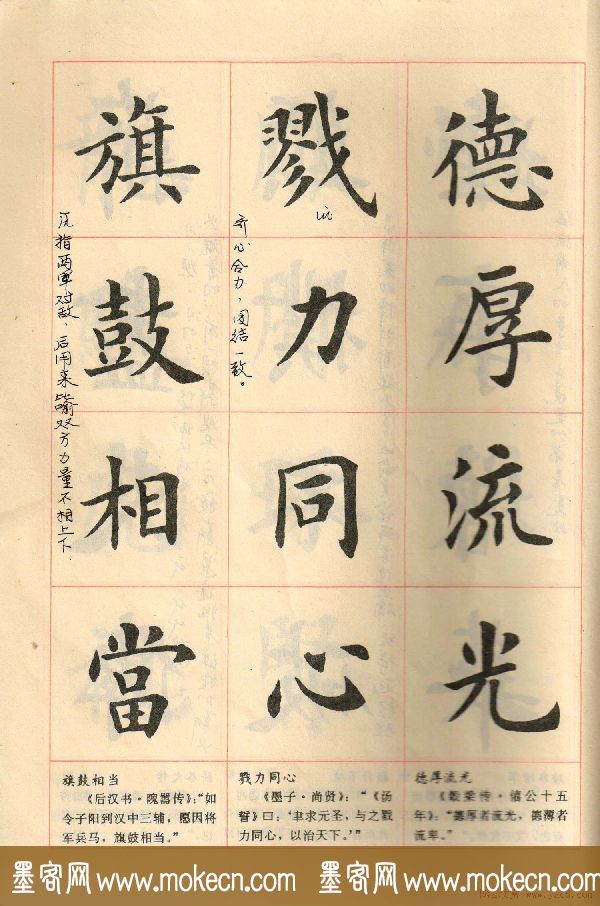 德厚流光
戮力同心
旗鼓相當
齐心合力,团结一致。
原指两军对敌,后用来比喻双方力量不相上下.
德厚流光
《穀梁传·僖公十五
年》:“德厚者流光,德薄者
流卑。”
戮力同心
《墨子·尚贤》:“《汤
誓》曰:‘聿求元圣,与之戮
力同心,以治天下。’”
旗鼓相当
《后汉书·隗嚣传》:“如
令子阳到汉中三辅,愿因将
军兵马,旗鼓相当。”
墨客网 www.mokecn.com 墨客网 www.mokecn.com